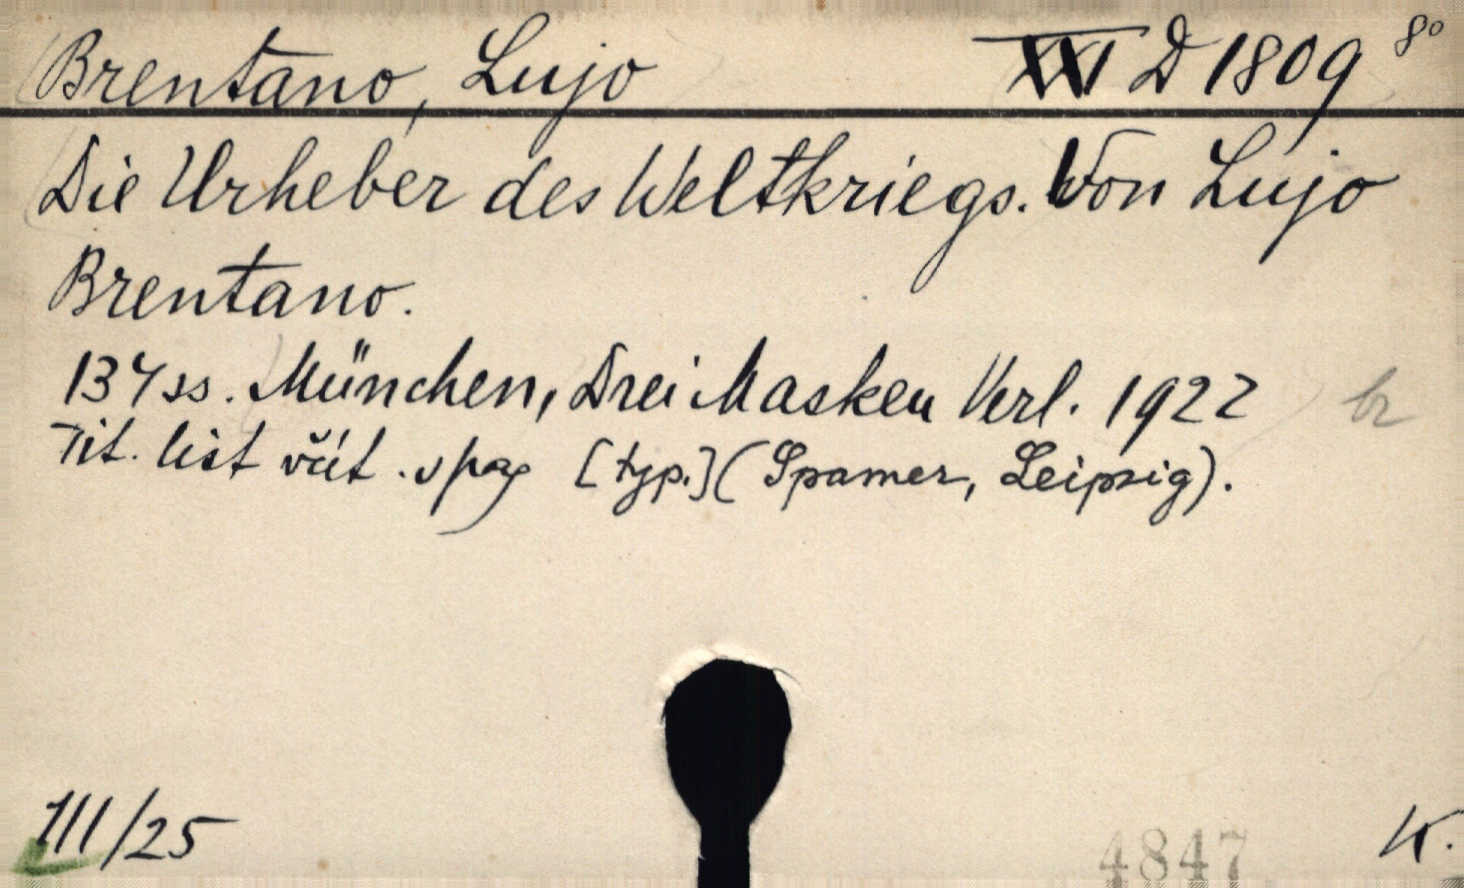 Brentano, Lujo XXI D 1809 8°
Die Urheber des Weltkriegs. Von Lujo
Brentano.
134 ss. München, Drei Masken Verl. 1922 br
Tit. list včít. v pag [typ.] (Spamer, Leipzig).
III/25
4847
K.